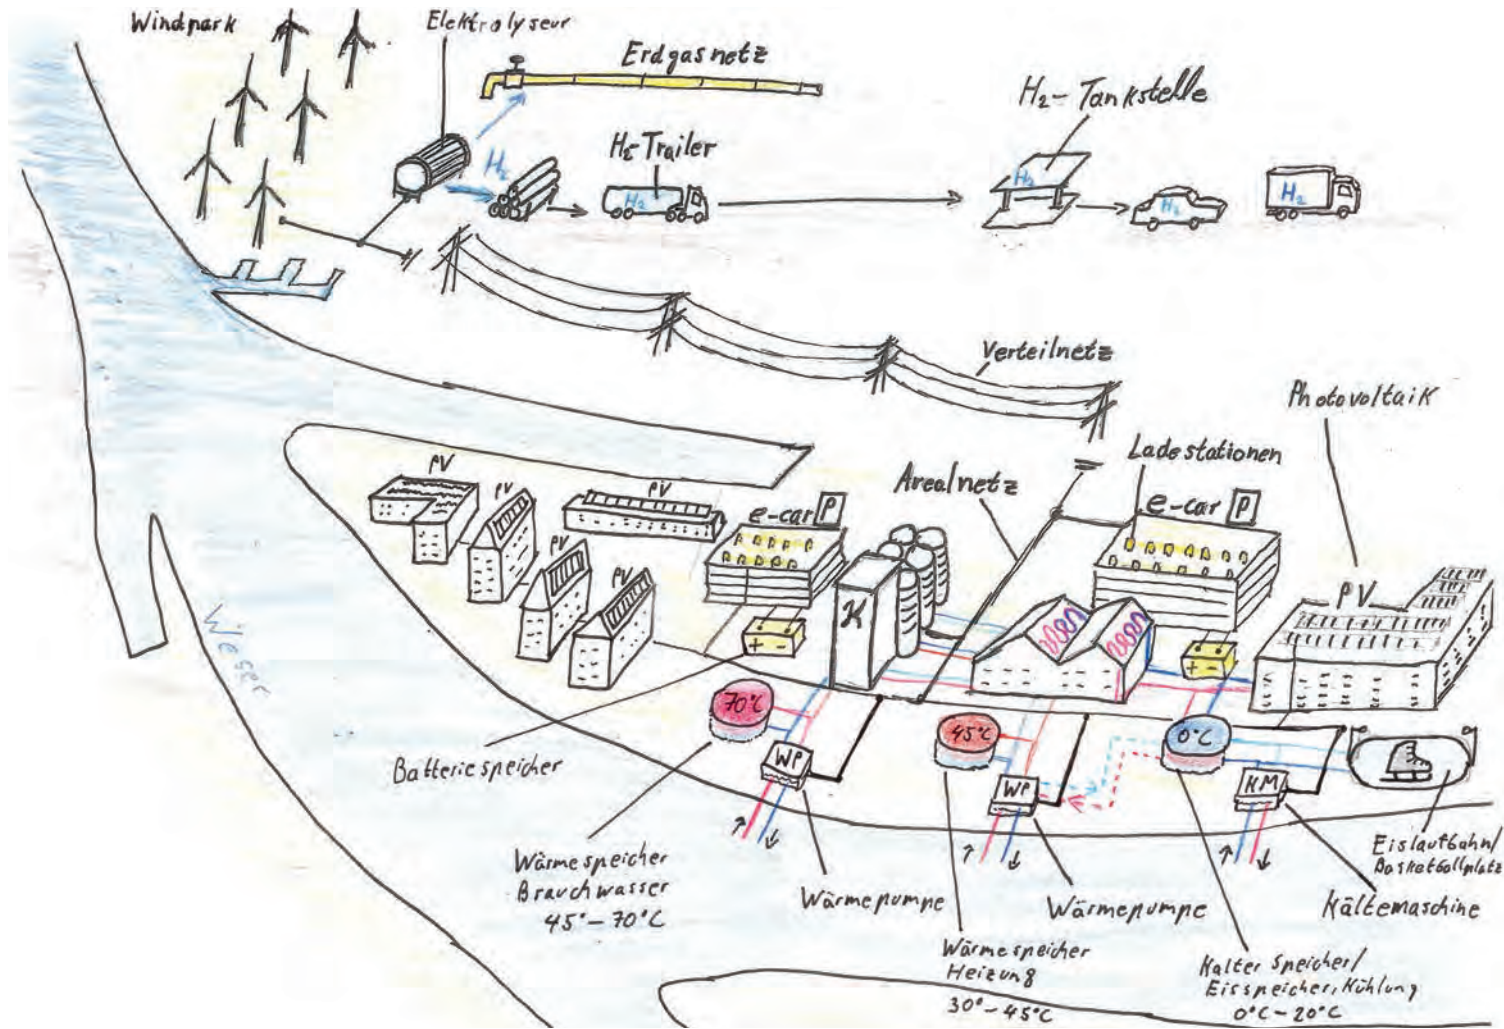 Windpark
Elektrolyseur
Erdgasnetz
H2-Tankstelle
H2-Trailer
H2
H2
H2
H2
H2
Verteilnetz
Photovoltaik
Ladestationen
Arealnetz
PV
PV
PV
PV
PV
e-car P
e-car P
PV
K
+ -
+ -
Weser
70°C
45°C
0°C
WP
WP
KM
Batteriespeicher
Wärmespeicher
Brauchwasser
45°-70°C
Wärmepumpe
Wärmepumpe
Wärmespeicher
Heizung
30°-45°C
Kalter Speicher/
Eisspeicher, Kühlung
0°C-20°C
Kältemaschine
Eislaufbahn/
Basketballplatz